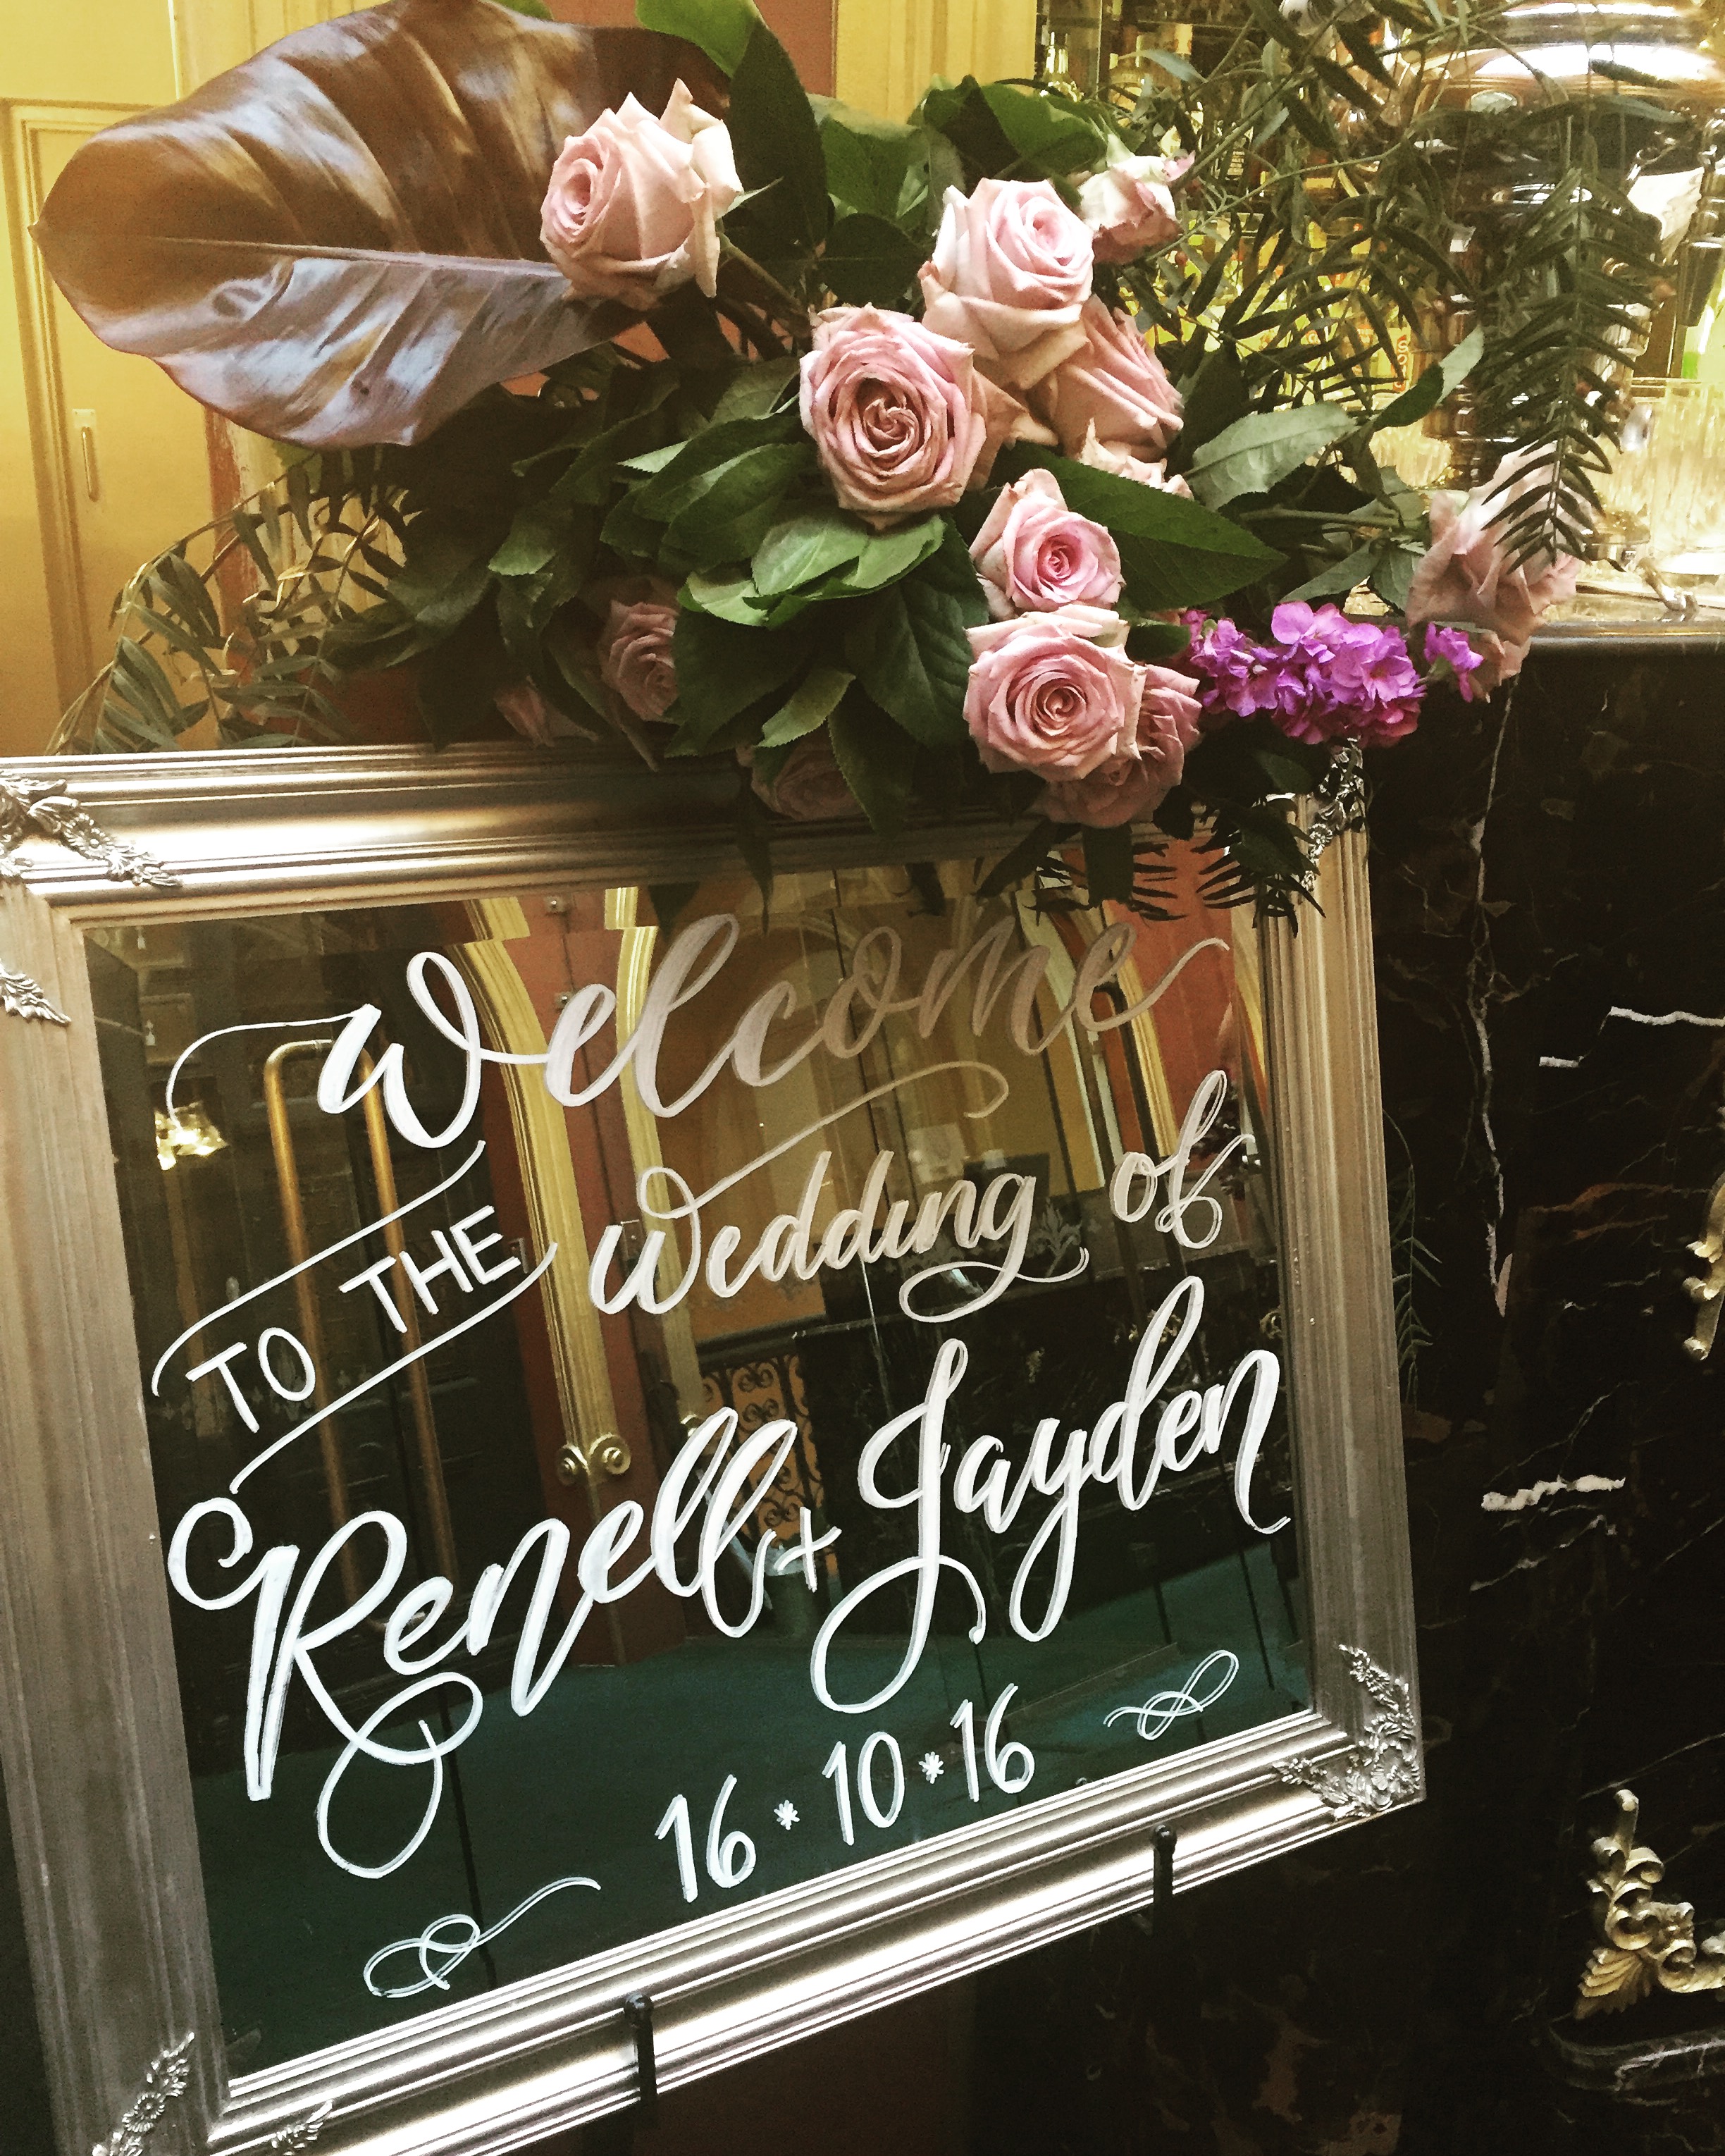 Welcome
TO THE Wedding of
Renell + Jayden
16 * 10 * 16